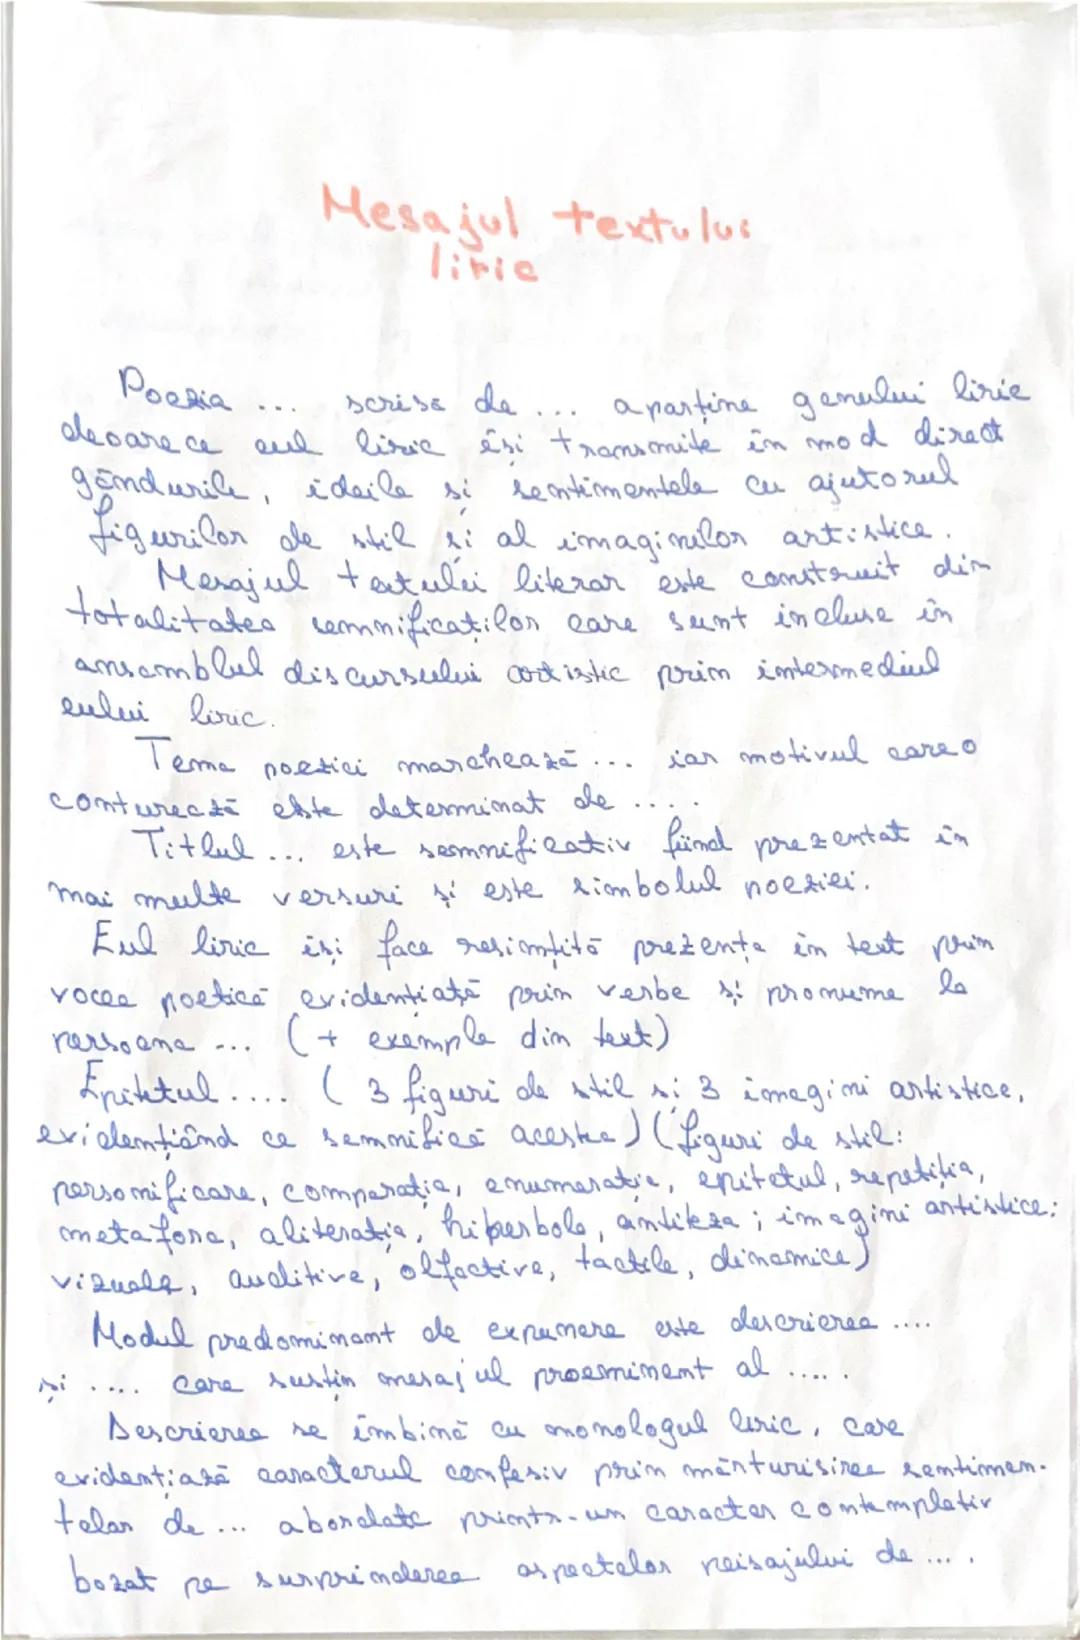 Mesajul textului
liric
Poezia ... scrisă de ... aparține genului liric
deoarece eul liric își transmite în mod direct
gândurile, ideile și sentimentele cu ajutorul
figurilor de stil și al imaginilor artistice.
Mesajul textului literar este construit din
totalitatea semnificaților care sunt incluse în
ansamblul discursului artistic prin intermediul
eului liric.
Tema poeziei marchează ... iar motivul care o
conturează este determinat de ....
Titlul ... este semnificativ fiind prezentat în
mai multe versuri și este simbolul poeziei.
Eul liric își face resimțită prezența în text prin
vocea poetică evidențiată prin verbe și pronume la
persoana ... (+ exemple din text)
Epitetul .... ( 3 figuri de stil și 3 imagini artistice,
evidențiând ce semnifică acestea) (figuri de stil:
personificare, comparația, enumerația, epitetul, repetiția,
metafora, aliterația, hiperbola, antiteza ; imagini artistice:
vizuale, auditive, olfactive, tactile, dinamice)
Modul predominant de expunere este descrierea ....
și .... care susțin mesajul proeminent al .....
Descrierea se îmbină cu monologul liric, care
evidențiază caracterul confesiv prin mărturisirea sentimen-
telor de ... abordate printr-un caracter contemplativ
bazat pe surprinderea aspectelor peisajului de ....